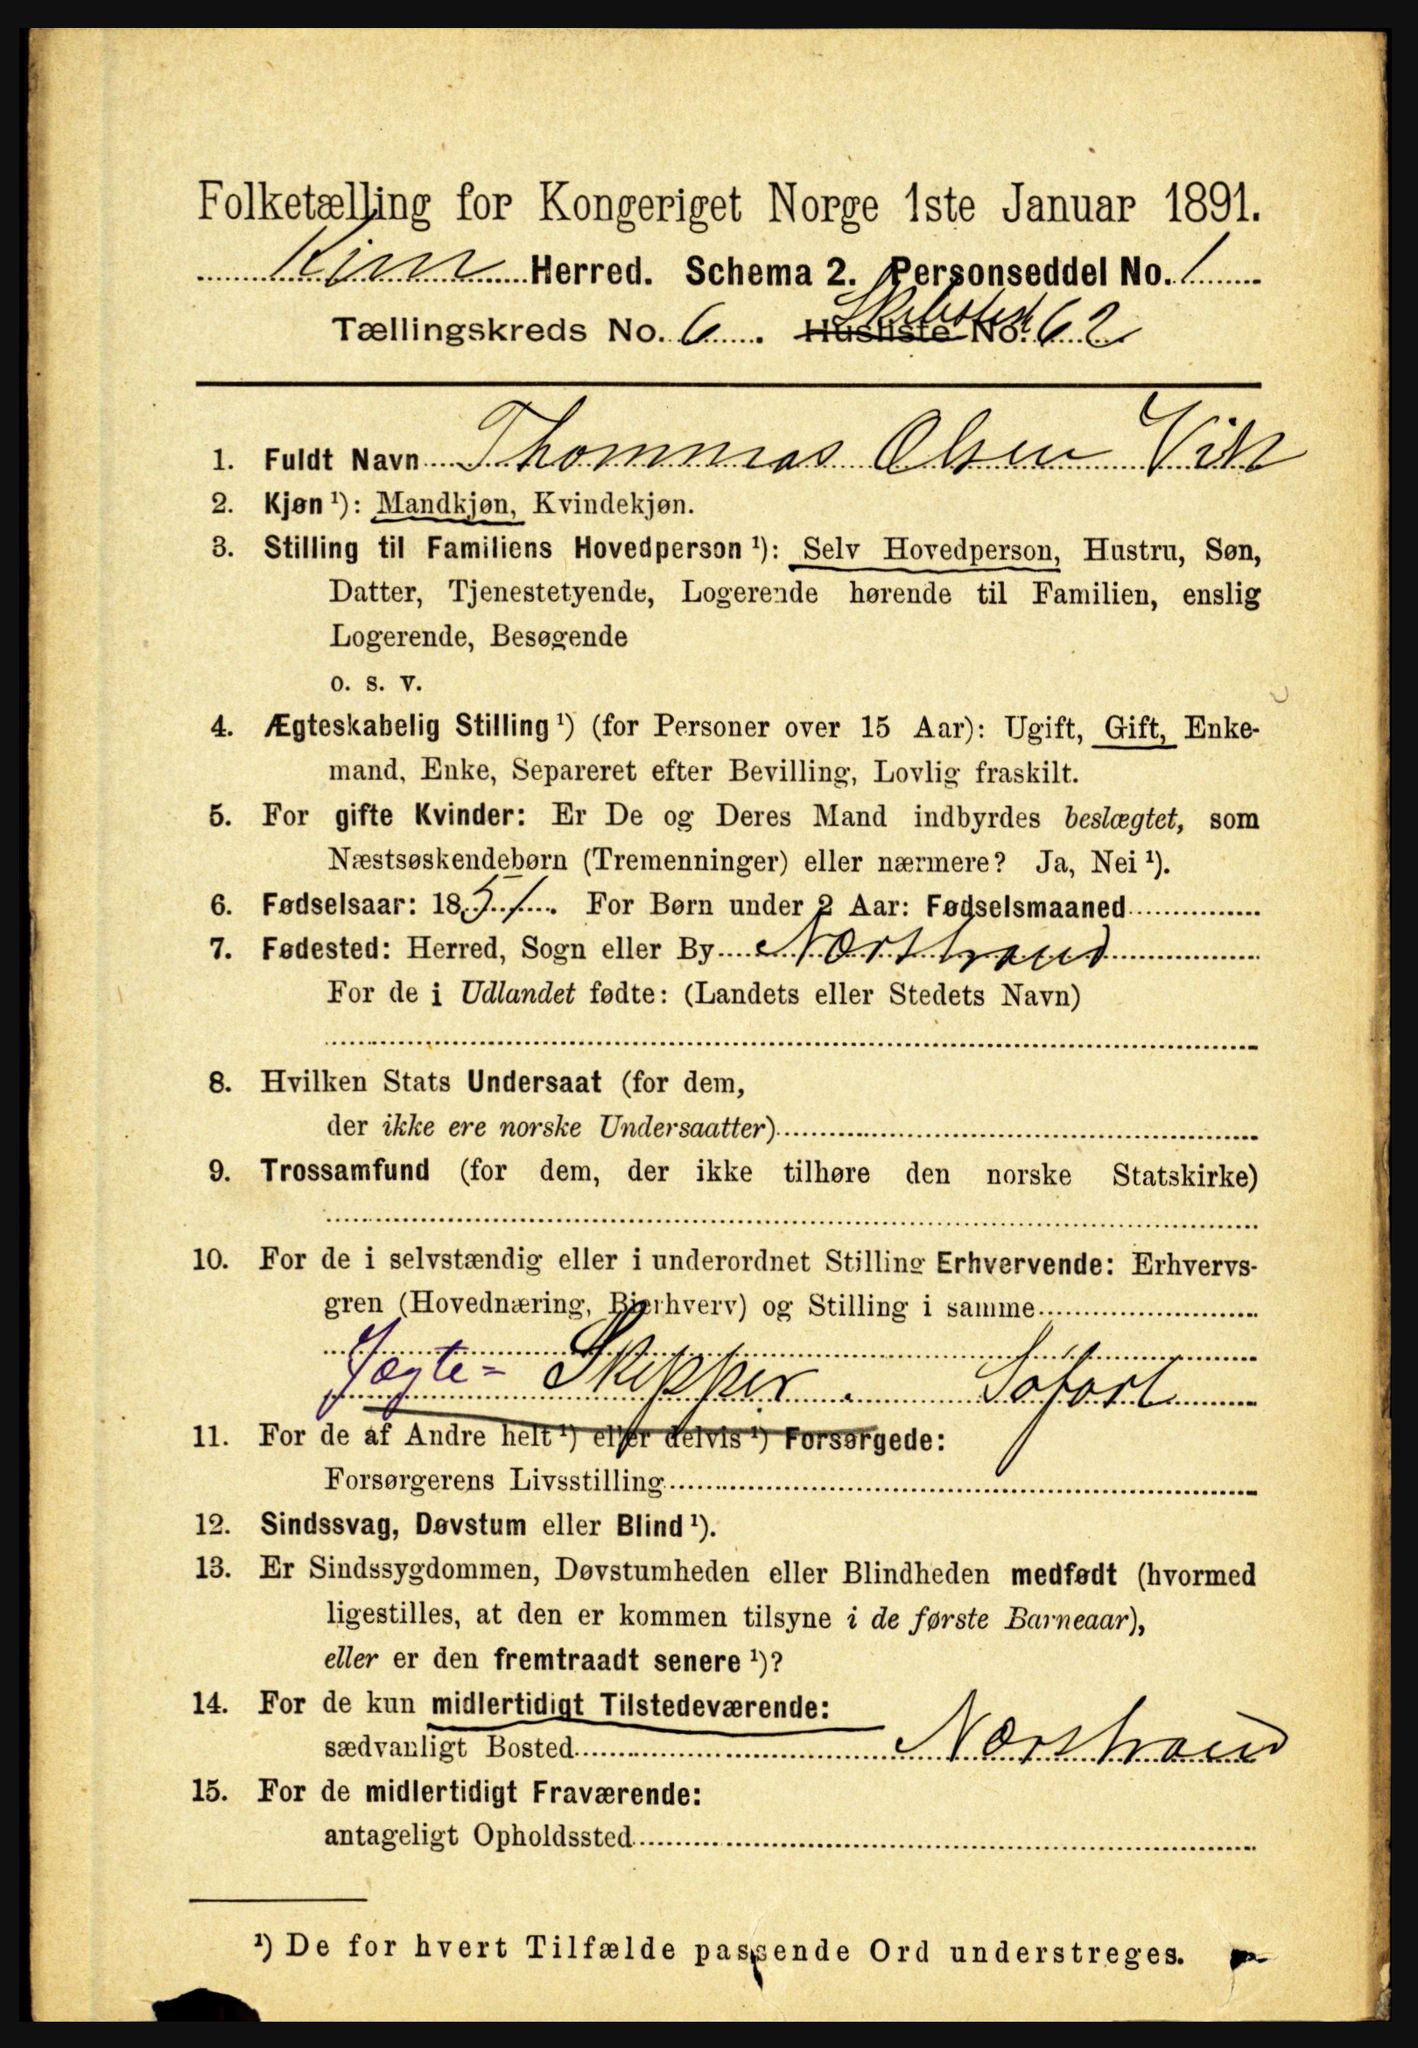 Folketælling for Kongeriget Norge 1ste Januar 1891.
Kinn Herred. Schema 2. Personseddel No. 1
Tællingskreds No. 6. Husliste Skibslist No. 62
1. Fuldt Navn Thommas Olsen Vik
2. Kjøn ¹): Mandkjøn, Kvindekjøn.
3. Stilling til Familiens Hovedperson ¹): Selv Hovedperson, Hustru, Søn,
Datter, Tjenestetyende, Logerende hørende til Familien, enslig
Logerende, Besøgende
o. s. v.
4. Ægteskabelig Stilling ¹) (for Personer over 15 Aar): Ugift, Gift, Enke-
mand, Enke, Separeret efter Bevilling, Lovlig fraskilt.
5. For gifte Kvinder: Er De og Deres Mand indbyrdes beslægtet, som
Næstsøskendebørn (Tremenninger) eller nærmere? Ja, Nei ¹).
6. Fødselsaar: 1851. For Børn under 2 Aar: Fødselsmaaned
7. Fødested: Herred, Sogn eller By Nærstrand
For de i Udlandet fødte: (Landets eller Stedets Navn)
8. Hvilken Stats Undersaat (for dem,
der ikke ere norske Undersaatter)
9. Trossamfund (for dem, der ikke tilhøre den norske Statskirke)
10. For de i selvstændig eller i underordnet Stilling Erhvervende: Erhvervs-
gren (Hovednæring, Bierhverv) og Stilling i samme
Jægte- Skipper. Søfart
11. For de af Andre helt ¹) eller delvis ¹) Forsørgede:
Forsørgerens Livsstilling
12. Sindssvag, Døvstum eller Blind ¹).
13. Er Sindssygdommen, Døvstumheden eller Blindheden medfødt (hvormed
ligestilles, at den er kommen tilsyne i de første Barneaar),
eller er den fremtraadt senere ¹)?
14. For de kun midlertidigt Tilstedeværende:
sædvanligt Bosted Nærstrand
15. For de midlertidigt Fraværende:
antageligt Opholdssted
¹) De for hvert Tilfælde passende Ord understreges.